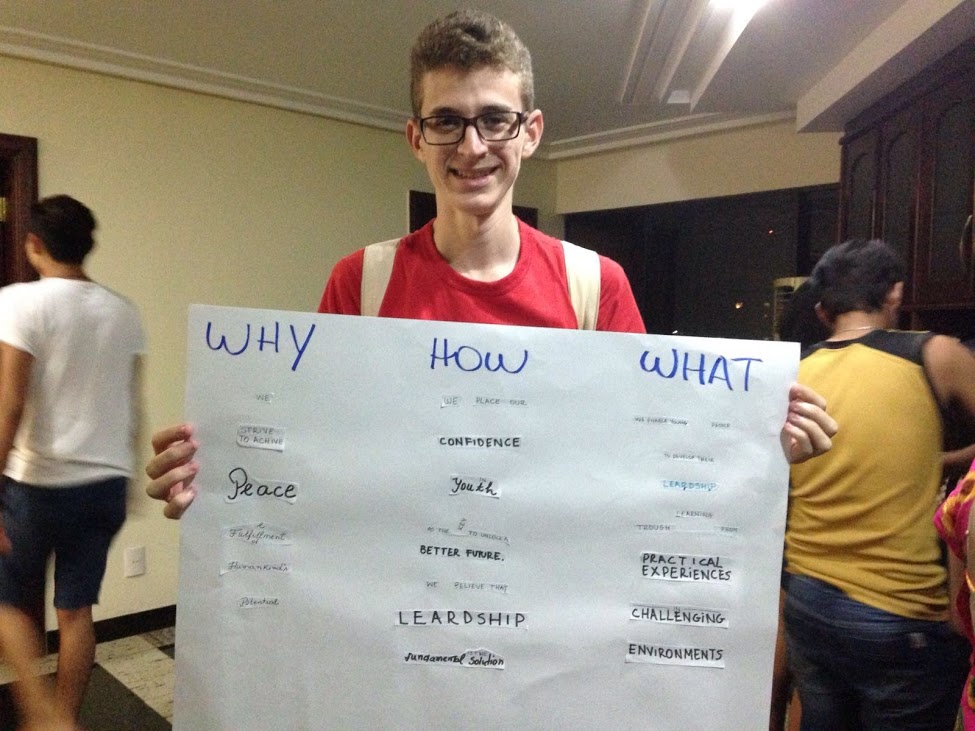 WHY
WE
STRIVE
TO ACHIVE
Peace
Fulfillment
Humankind's
Potential
HOW
WE PLACE OUR
CONFIDENCE
Youth
AS THE TO UNLOCK A
BETTER FUTURE.
WE BELIEVE THAT
LEARDSHIP
fundamental Solution
WHAT
WE ENABLE YOUNG PEOPLE
TO DEVELOP THEIR
LEARDSHIP
LEARNING
TROUGH FROM
PRACTICAL
EXPERIENCES
CHALLENGING
ENVIRONMENTS